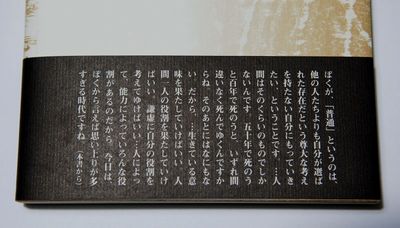 ぼくが、「普通」というのは、
他の人たちよりも自分が選ば
れた存在だという尊大な考え
を持たない自分にもっていき
たい、ということです。…人
間はそのくらいのものでしか
ないんです。五十年で死のう
と百年で死のうと、いずれ間
違いなく死んでゆくんですか
らね。そのあとにはなにもな
い。だから、…生きている意
味を果たしていけばいい。人
間一人の役割を果たしていけ
ばいい。謙虚に自分の役割を
考えてゆけばいい…人によっ
て、能力によっていろんな役
割があるのだから。今日は、
ぼくから言えば思い上りが多
すぎる時代ですね。(本書から)